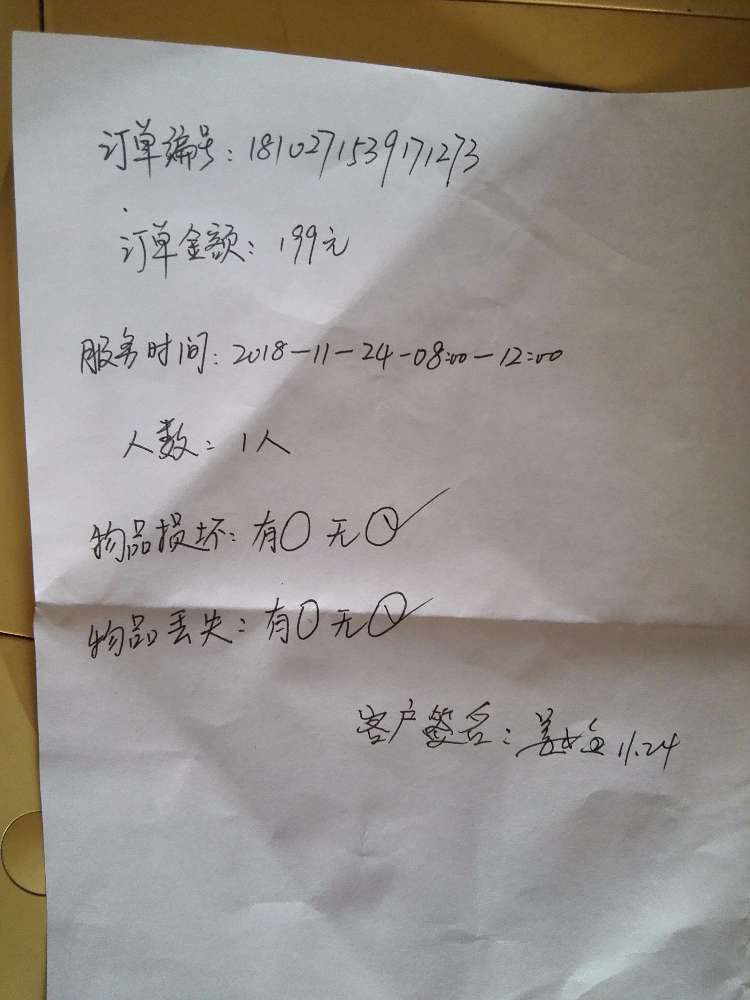 订单编号：1810271539171273
订单金额：199元
服务时间：2018-11-24-08:00-12:00
人数：1人
物品损坏：有○ 无○✓
物品丢失：有○ 无○✓
客户签名：11.24